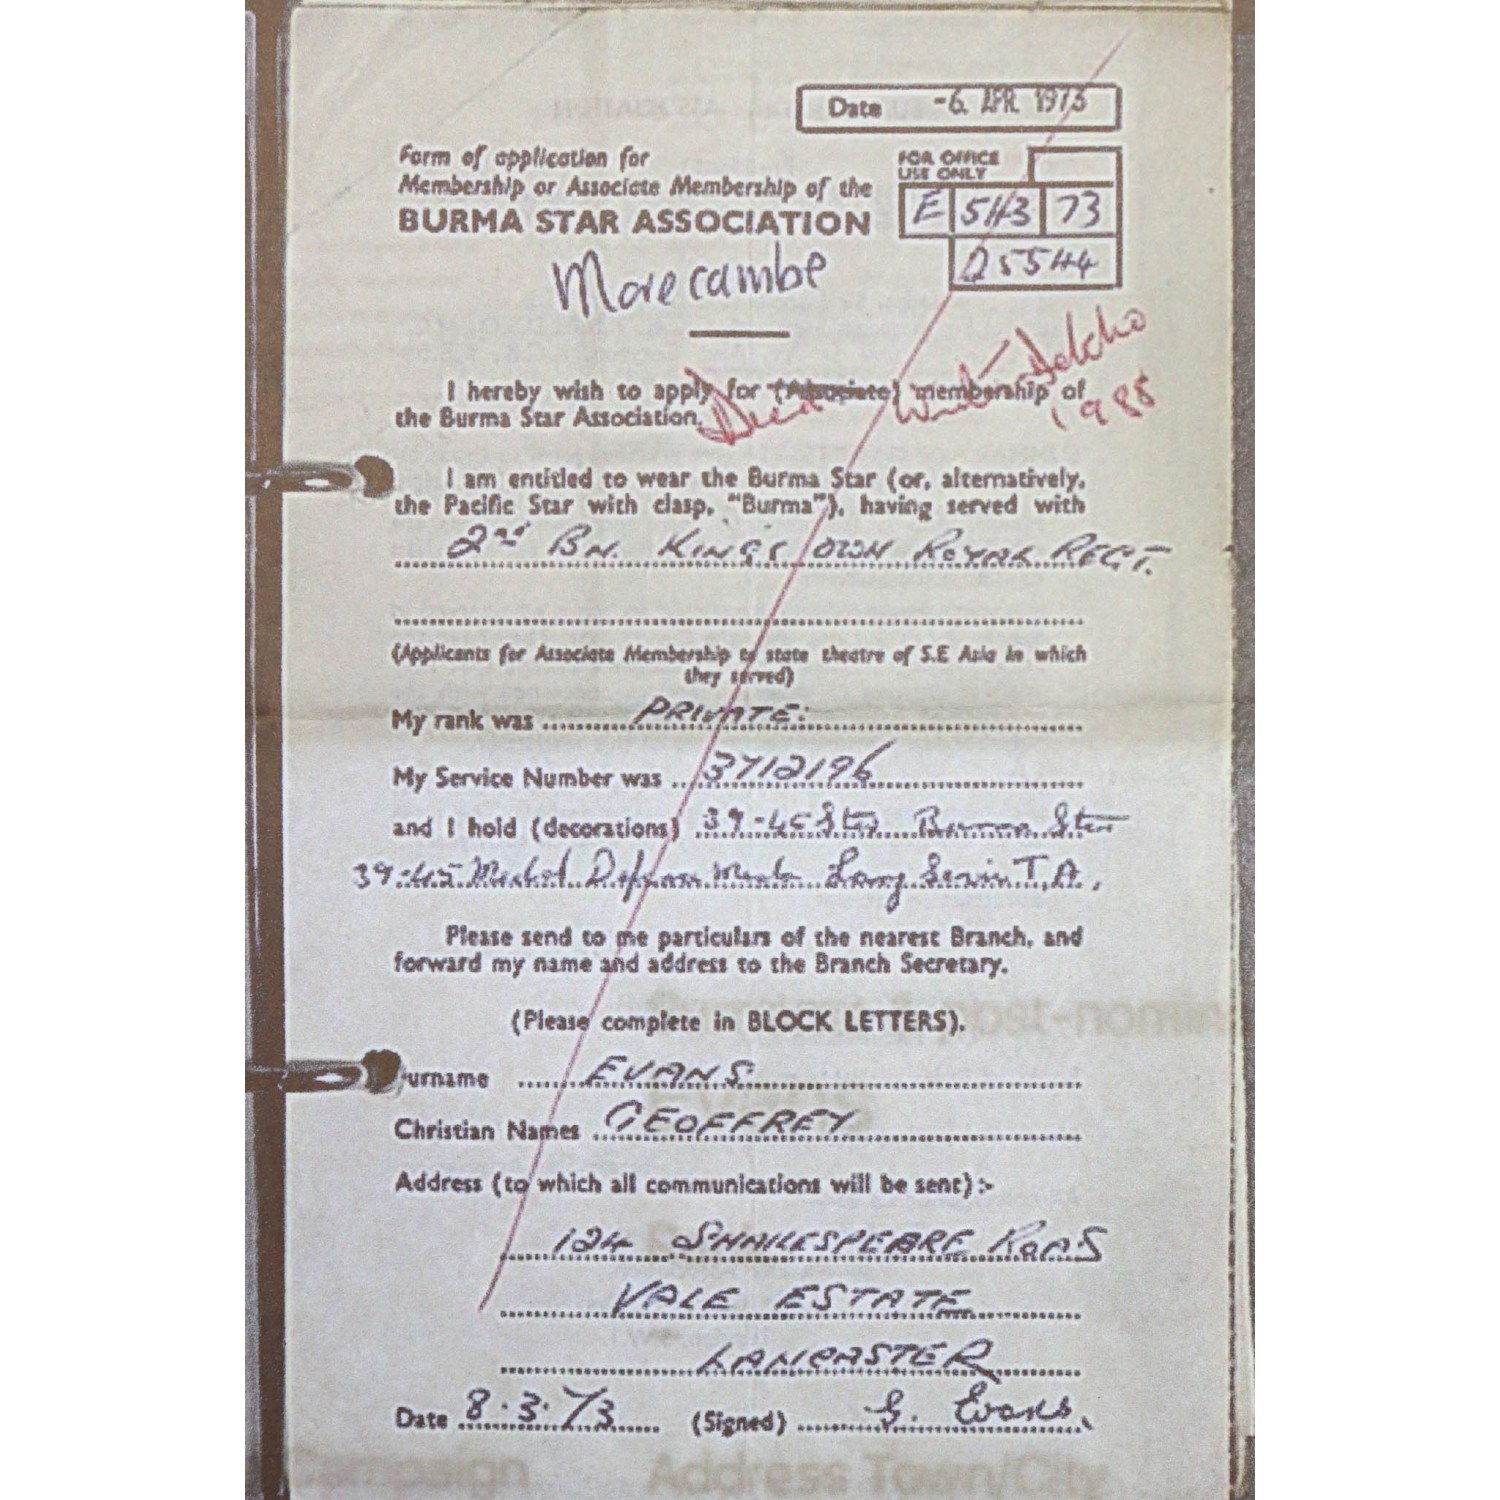 Date -6 APR 1973
Form of application for
Membership or Associate Membership of the
BURMA STAR ASSOCIATION
FOR OFFICE
USE ONLY
E 543 73
Q5544
Morecambe
I hereby wish to apply for (Associate) membership of
the Burma Star Association.
1988
I am entitled to wear the Burma Star (or, alternatively,
the Pacific Star with clasp, "Burma"), having served with
2nd BN. KINGS OWN ROYAL REGT.
(Applicants for Associate Membership to state theatre of S.E Asia in which
they served)
My rank was PRIVATE.
My Service Number was 3712196
and I hold (decorations) 39-45 Star Burma Star
39-45 Medal Defence Medal Long Service T.A.
Please send to me particulars of the nearest Branch, and
forward my name and address to the Branch Secretary.
(Please complete in BLOCK LETTERS).
urname EVANS
Christian Names GEOFFREY
Address (to which all communications will be sent):-
124 SHAKESPEARE ROAD
VALE ESTATE
LANCASTER
Date 8.3.73 (Signed) G. Evans.
Campaign Address Town/City